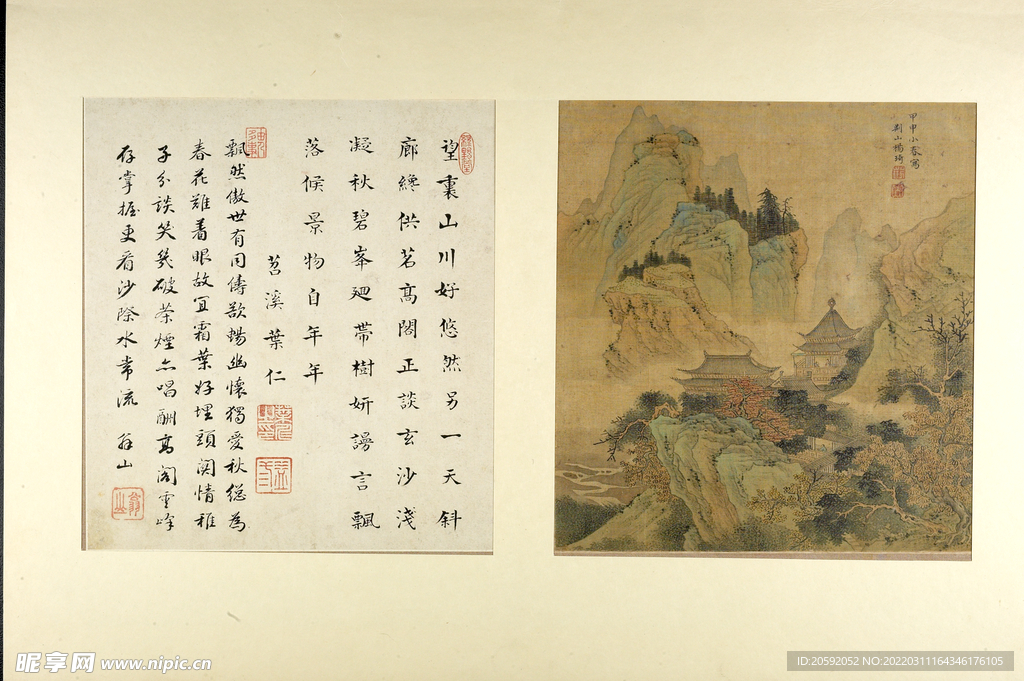 望裏山川好悠然另一天斜
廊纔供茗高閣正談玄沙淺
凝秋碧峯廻帶樹妍謾言飄
落候景物自年年
苕溪葉仁
飄然傲世有同儔歆暢幽懷獨愛秋緫為
春花難着眼故宜霜葉好埋頭関情稚
子分談笑幾破茶煙亦唱酬高閣雲峰
存掌握更看沙除水常流
甲申小春寫
楊琦
昵享网 www.nipic.cn
ID:20592052 NO:20220311164346176105